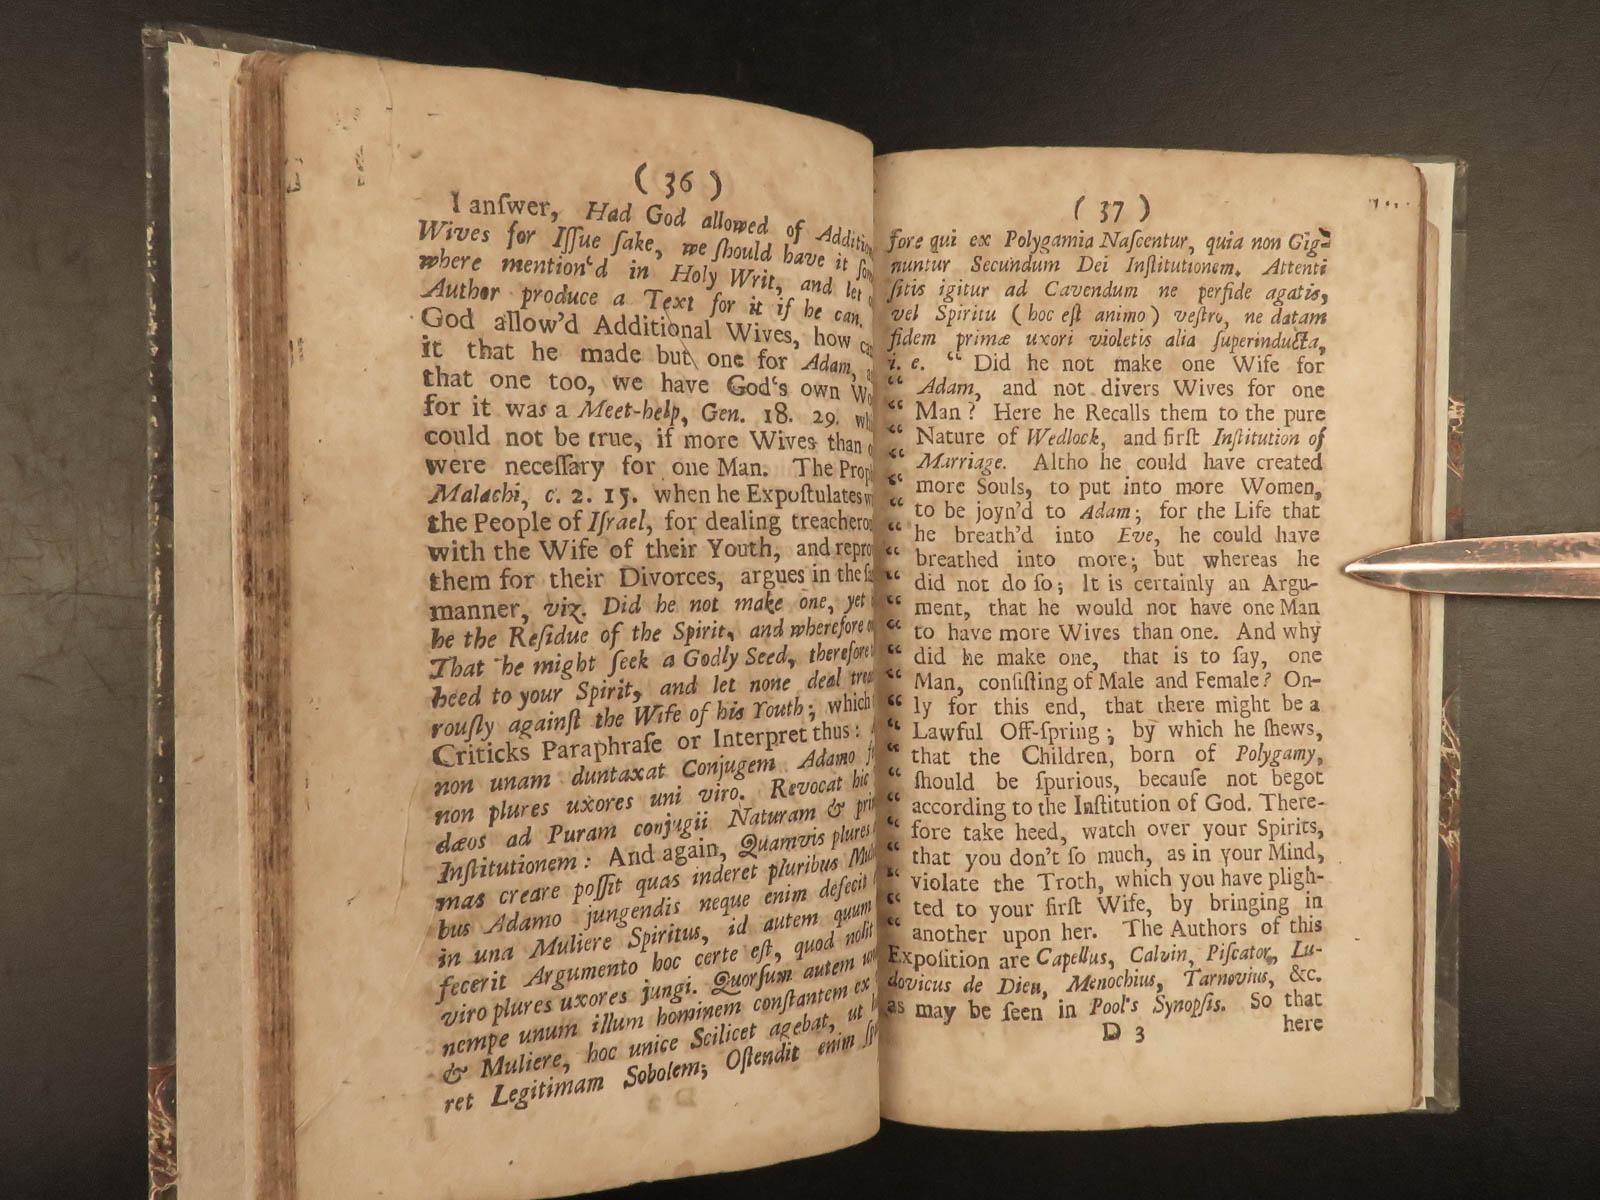 ( 36 )
I anſwer, Had God allowed of
Wives for Iſſue ſake, we ſhould have it
where mention'd in Holy Writ, and let
Author produce a Text for it if he can.
God allow'd Additional Wives, how
it that he made but one for Adam,
that one too, we have God's own
for it was a Meet-help, Gen. 18. 29.
could not be true, if more Wives than
were neceſſary for one Man. The
Malachi, c. 2. 15. when he Expoſtulates
the People of Iſrael, for dealing
with the Wife of their Youth, and
them for their Divorces, argues in the
manner, viz. Did he not make one, yet
he the Reſidue of the Spirit, and wherefore
That he might ſeek a Godly Seed, therefore
heed to your Spirit, and let none deal
rouſly againſt the Wife of his Youth; which
Criticks Paraphraſe or Interpret thus:
non unam duntaxat Conjugem Adamo
non plures uxores uni viro. Revocat hic
dæos ad Puram conjugii Naturam &
Inſtitutionem: And again, Quamvis plures
mas creare poſſit quas inderet pluribus
bus Adamo jungendis neque enim defecit
in una Muliere Spiritus, id autem quum
fecerit Argumento hoc certe eſt, quod nolit
viro plures uxores jungi. Quorſum autem
nempe unum illum hominem conſtantem ex
& Muliere, hoc unice Scilicet agebat, ut
ret Legitimam Sobolem; Oſtendit enim
( 37 )
fore qui ex Polygamia Naſcentur, quia non Gig-
nuntur Secundum Dei Inſtitutionem. Attenti
ſitis igitur ad Cavendum ne perfide agatis,
vel Spiritu (hoc eſt animo) veſtro, ne datam
fidem primæ uxori violetis alia ſuperinducta,
i. e. “ Did he not make one Wife for
“ Adam, and not divers Wives for one
“ Man? Here he Recalls them to the pure
“ Nature of Wedlock, and firſt Inſtitution of
“ Marriage. Altho he could have created
“ more Souls, to put into more Women,
“ to be joyn'd to Adam; for the Life that
“ he breath'd into Eve, he could have
“ breathed into more; but whereas he
“ did not do ſo; It is certainly an Argu-
“ ment, that he would not have one Man
“ to have more Wives than one. And why
“ did he make one, that is to ſay, one
“ Man, conſiſting of Male and Female? On-
“ ly for this end, that there might be a
“ Lawful Off-ſpring; by which he ſhews,
“ that the Children, born of Polygamy,
“ ſhould be ſpurious, becauſe not begot
“ according to the Inſtitution of God. There-
“ fore take heed, watch over your Spirits,
“ that you don't ſo much, as in your Mind,
“ violate the Troth, which you have pligh-
“ ted to your firſt Wife, by bringing in
“ another upon her. The Authors of this
Expoſition are Capellus, Calvin, Piſcator, Lu-
dovicus de Dieu, Menochius, Tarnovius, &c.
as may be ſeen in Pool's Synopſis. So that
D 3 here